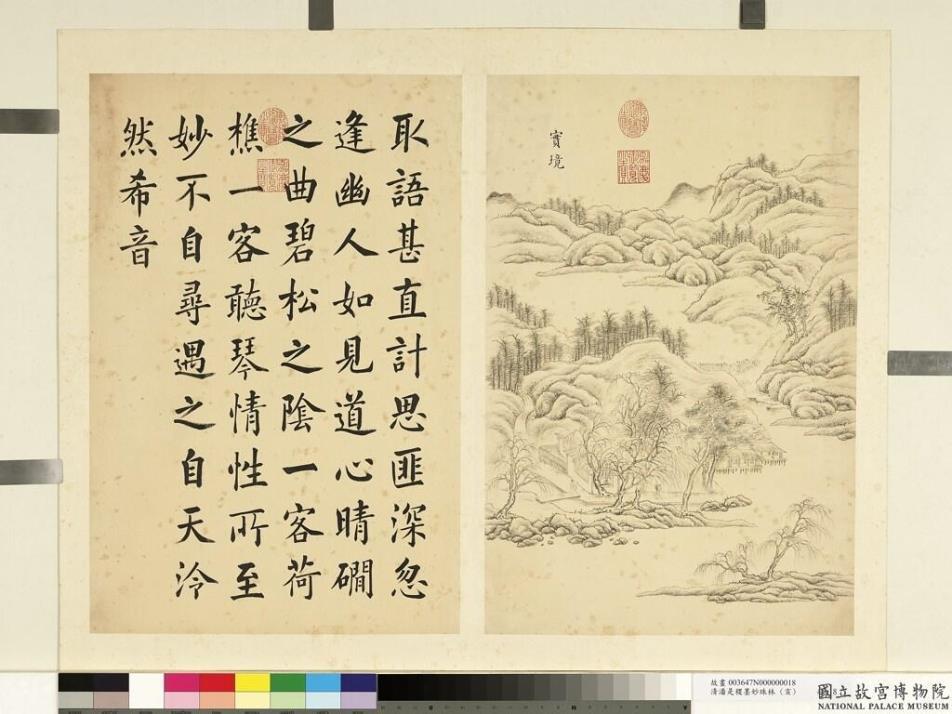 實境
取語甚直計思匪深忽
逢幽人如見道心晴磵
之曲碧松之陰一客荷
樵一客聽琴情性所至
妙不自尋遇之自天泠
然希音
故畫 003647N000000018
清潘是稷墨妙珠林
國立故宮博物院
NATIONAL PALACE MUSEUM